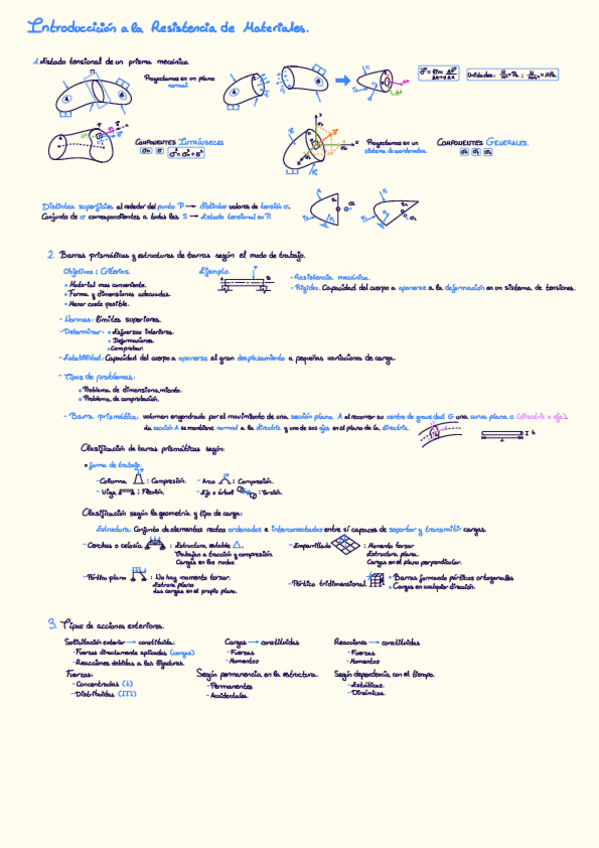 Introduccición a la Resistencia de Materiales.
1. Estado tensional de un prisma mecánico.
Proyectamos en un plano
normal.
Unidades:
COMPONENTES INTRÍNSECAS
Proyectamos en un
sistema de coordenadas.
COMPONENTES GENERALES.
Distintas superficies al rededor del punto P → distintos valores de tensión σ.
Conjunto de σ correspondientes a todas las S → Estado tensional en P
2. Barras prismáticas y estructuras de barras según el modo de trabajo.
Objetivos: Criterios.
Material mas conveniente.
Forma y dimensiones adecuadas.
Menor coste posible.
Ejemplo.
- Resistencia mecánica.
- Rigidez. Capacidad del cuerpo a oponerse a la deformación en un sistema de tensiones.
- Normas: límites superiores.
- Determinar: Esfuerzos interiores.
Deformaciones.
Comprobar.
- Estabilidad: Capacidad del cuerpo a oponerse al gran desplazamiento a pequeñas variaciones de carga.
- Tipos de problemas:
Problema de dimensionamiento.
Problema de comprobación.
- Barra prismática: volumen engendrado por el movimiento de una sección plana A al recorrer su centro de gravedad G una curva plana c (directriz o eje).
La sección A se mantiene normal a la directriz y uno de sus ejes en el plano de la directriz.
Clasificación de barras prismáticas según:
forma de trabajo.
- Columna : Compresión. - Arco : Compresión.
- Viga : Flexión. - Eje o árbol : Torsión.
Clasificación según la geometría y tipo de carga:
Estructura: Conjunto de elementos rectos ordenados e interconectados entre sí capaces de soportar y transmitir cargas.
- Cerchas o celosía : Estructura estable △.
Trabajan a tracción y compresión
Cargas en los nudos.
- Emparrillado : Momento torsor
Estructura plana.
Cargas en el plano perpendicular.
- Pórtico plano : No hay momento torsor.
Las cargas en el propio plano.
- Pórtico tridimensional
Barras formando pórticos ortogonales
Cargas en cualquier dirección.
3. Tipos de acciones exteriores.
Solicitación exterior → constituida:
- Fuerzas directamente aplicadas (cargas)
- Reacciones debidas a las ligaduras.
Cargas → constituidas
- Fuerzas
- Momentos
Reacciones → constituidas
- Fuerzas
- Momentos
Fuerzas:
- Concentradas (↓)
- Distribuidas (↓↓↓)
Según permanencia en la estructura.
- Permanentes
- Accidentales
Según dependencia con el tiempo.
- Estáticas.
- Dinámicas.